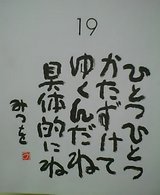 19
ひとつひとつ
かたづけて
ゆくんだね
具体的にね
みつを